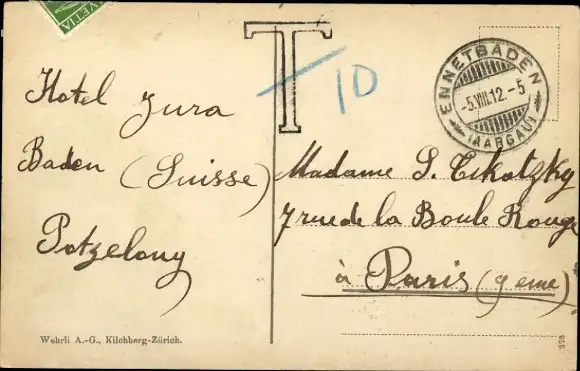 HELVETIA
T
10
ENNETBADEN
-5.VIII.12.-5
(AARGAU)
Hotel Jura
Baden (Suisse)
Madame S.
7 rue de la Boule Rouge
à Paris (9eme)
Wehrli A.-G., Kilchberg-Zürich.